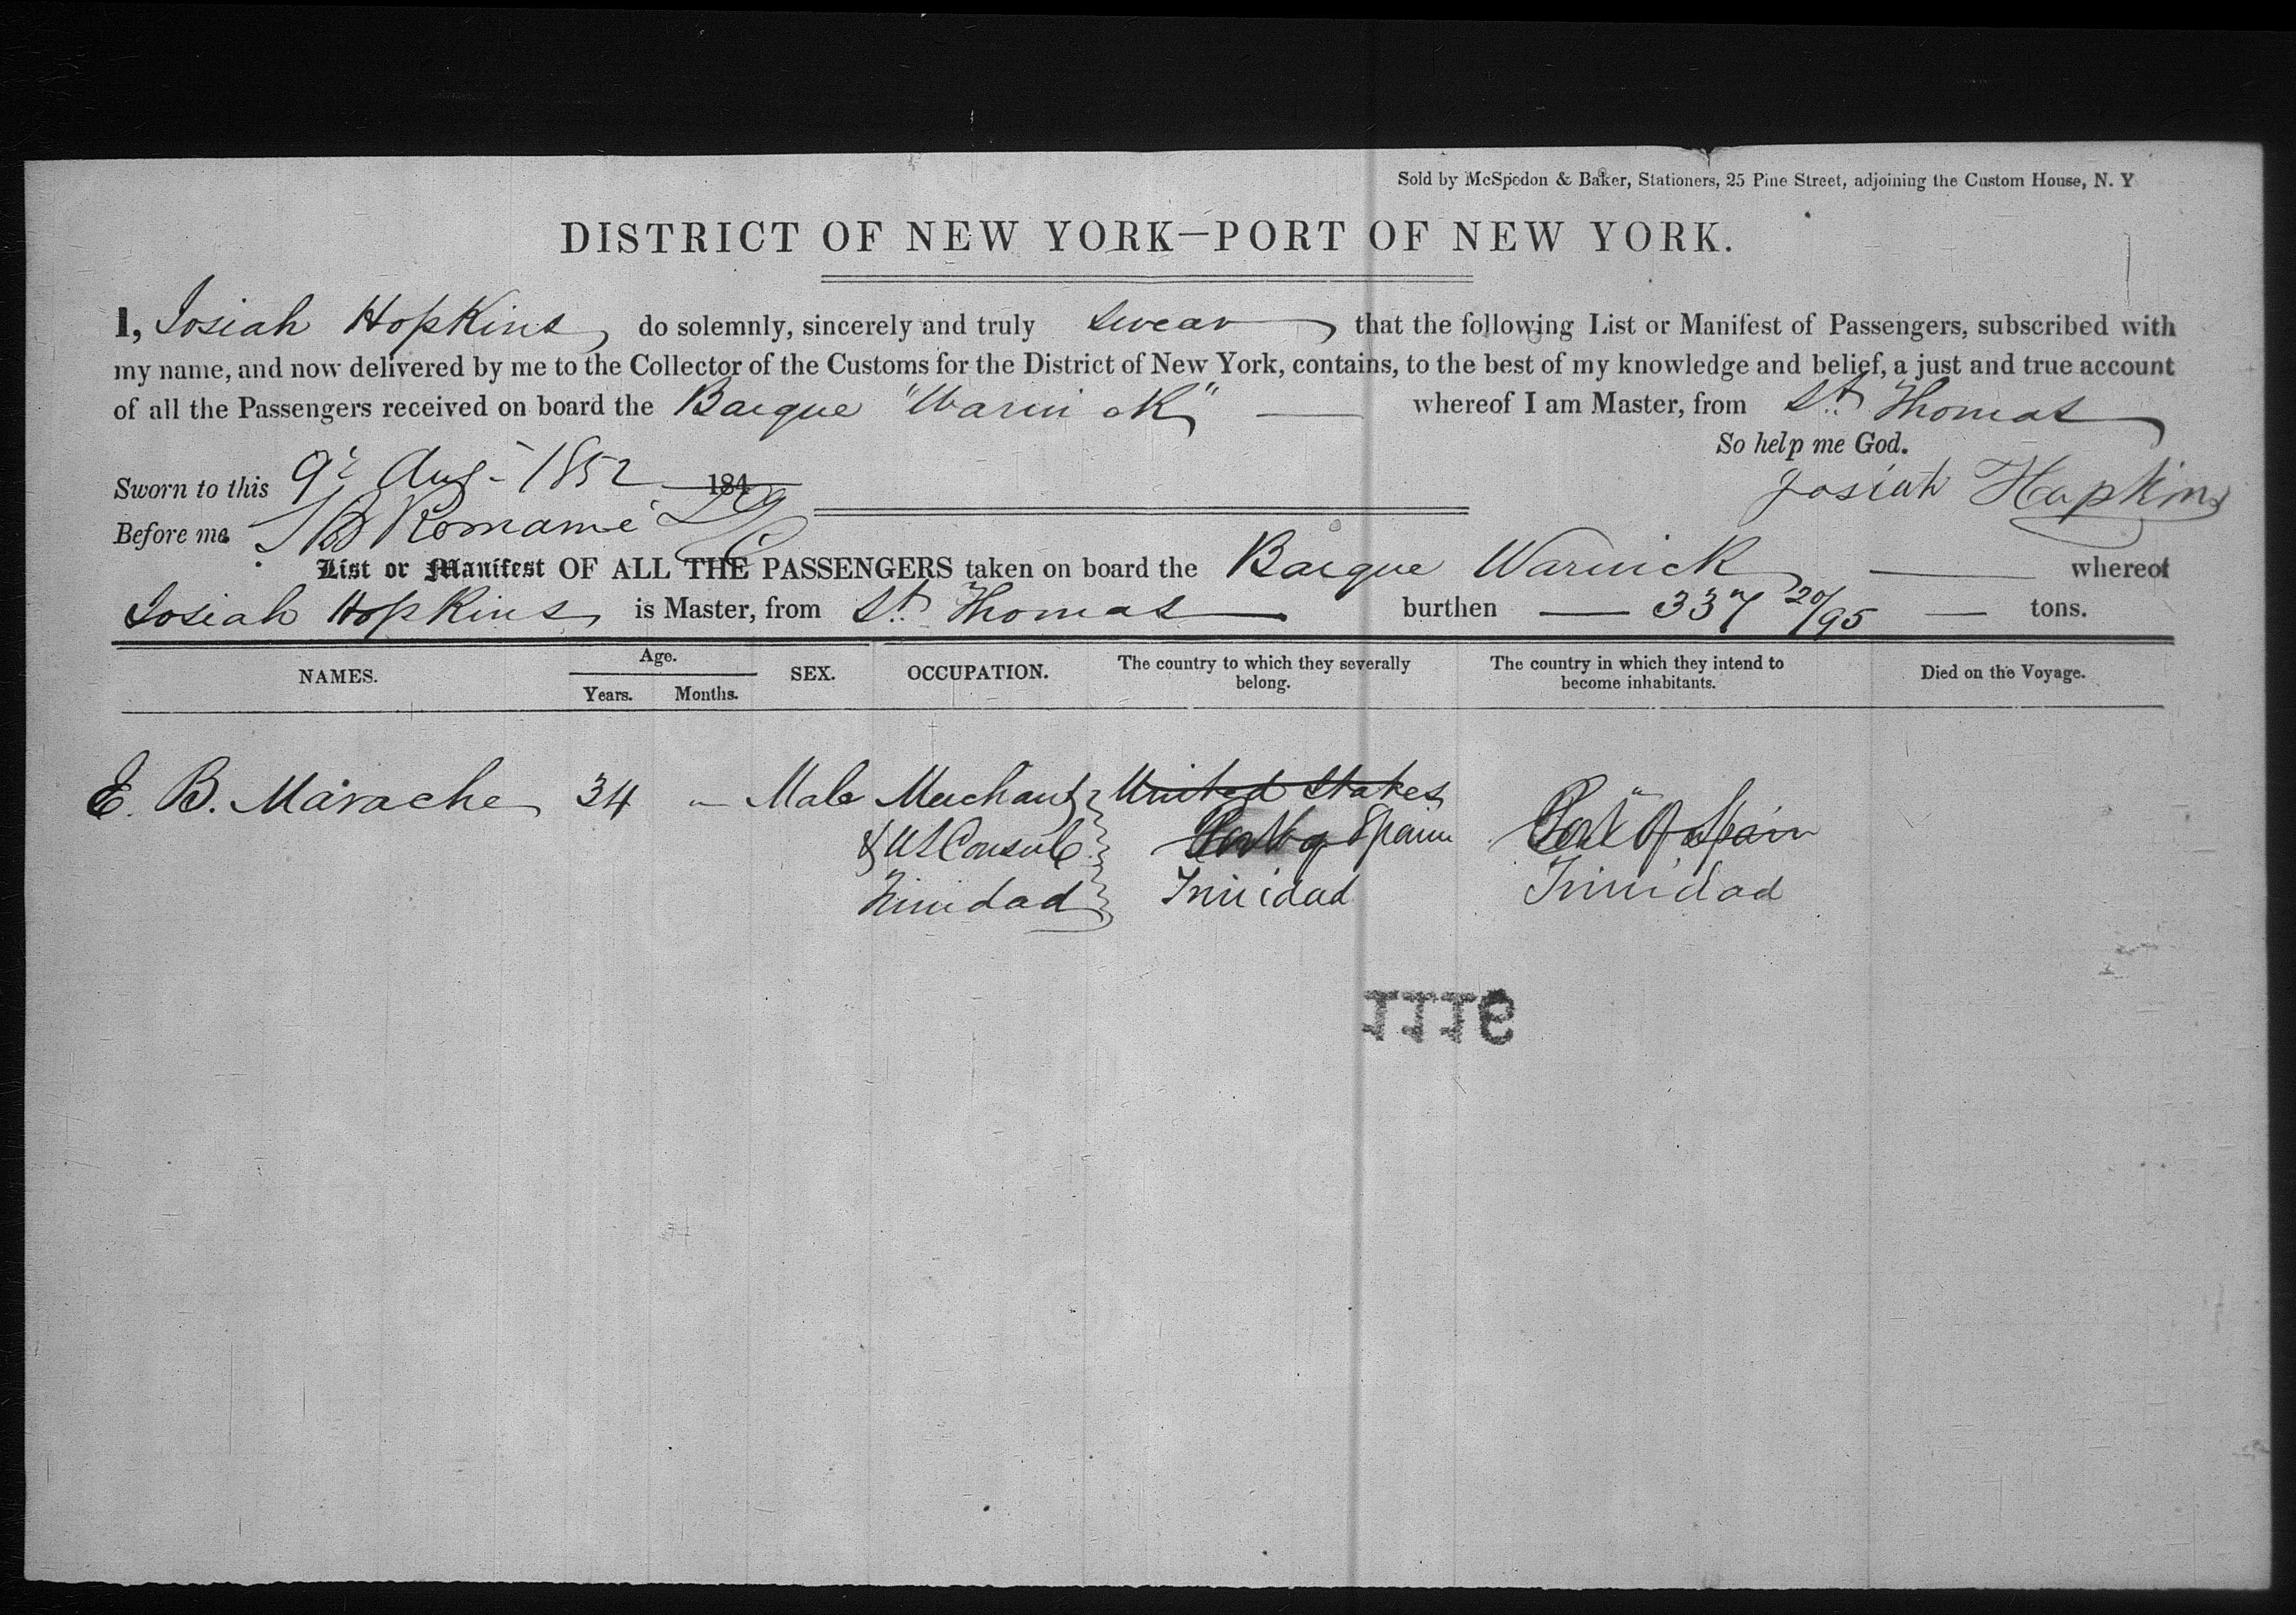 Sold by McSpedon & Baker, Stationers, 25 Pine Street, adjoining the Custom House, N. Y
DISTRICT OF NEW YORK—PORT OF NEW YORK.
I, Josiah Hopkins, do solemnly, sincerely and truly swear that the following List or Manifest of Passengers, subscribed with
my name, and now delivered by me to the Collector of the Customs for the District of New York, contains, to the best of my knowledge and belief, a just and true account
of all the Passengers received on board the Barque "Warwick" — whereof I am Master, from St. Thomas
So help me God.
Sworn to this 9th Aug - 1852 184
Josiah Hopkins
Before me
List or Manifest OF ALL THE PASSENGERS taken on board the Barque Warwick — whereof
Josiah Hopkins is Master, from St. Thomas — burthen — 337 20/95 — tons.
NAMES. Age. SEX. OCCUPATION. The country to which they severally belong. The country in which they intend to become inhabitants. Died on the Voyage.
Years. Months.
E. B. Marache 34 " Male Merchant United States
& US Consul Port of Spain Port of Spain
Trinidad Trinidad Trinidad
9111